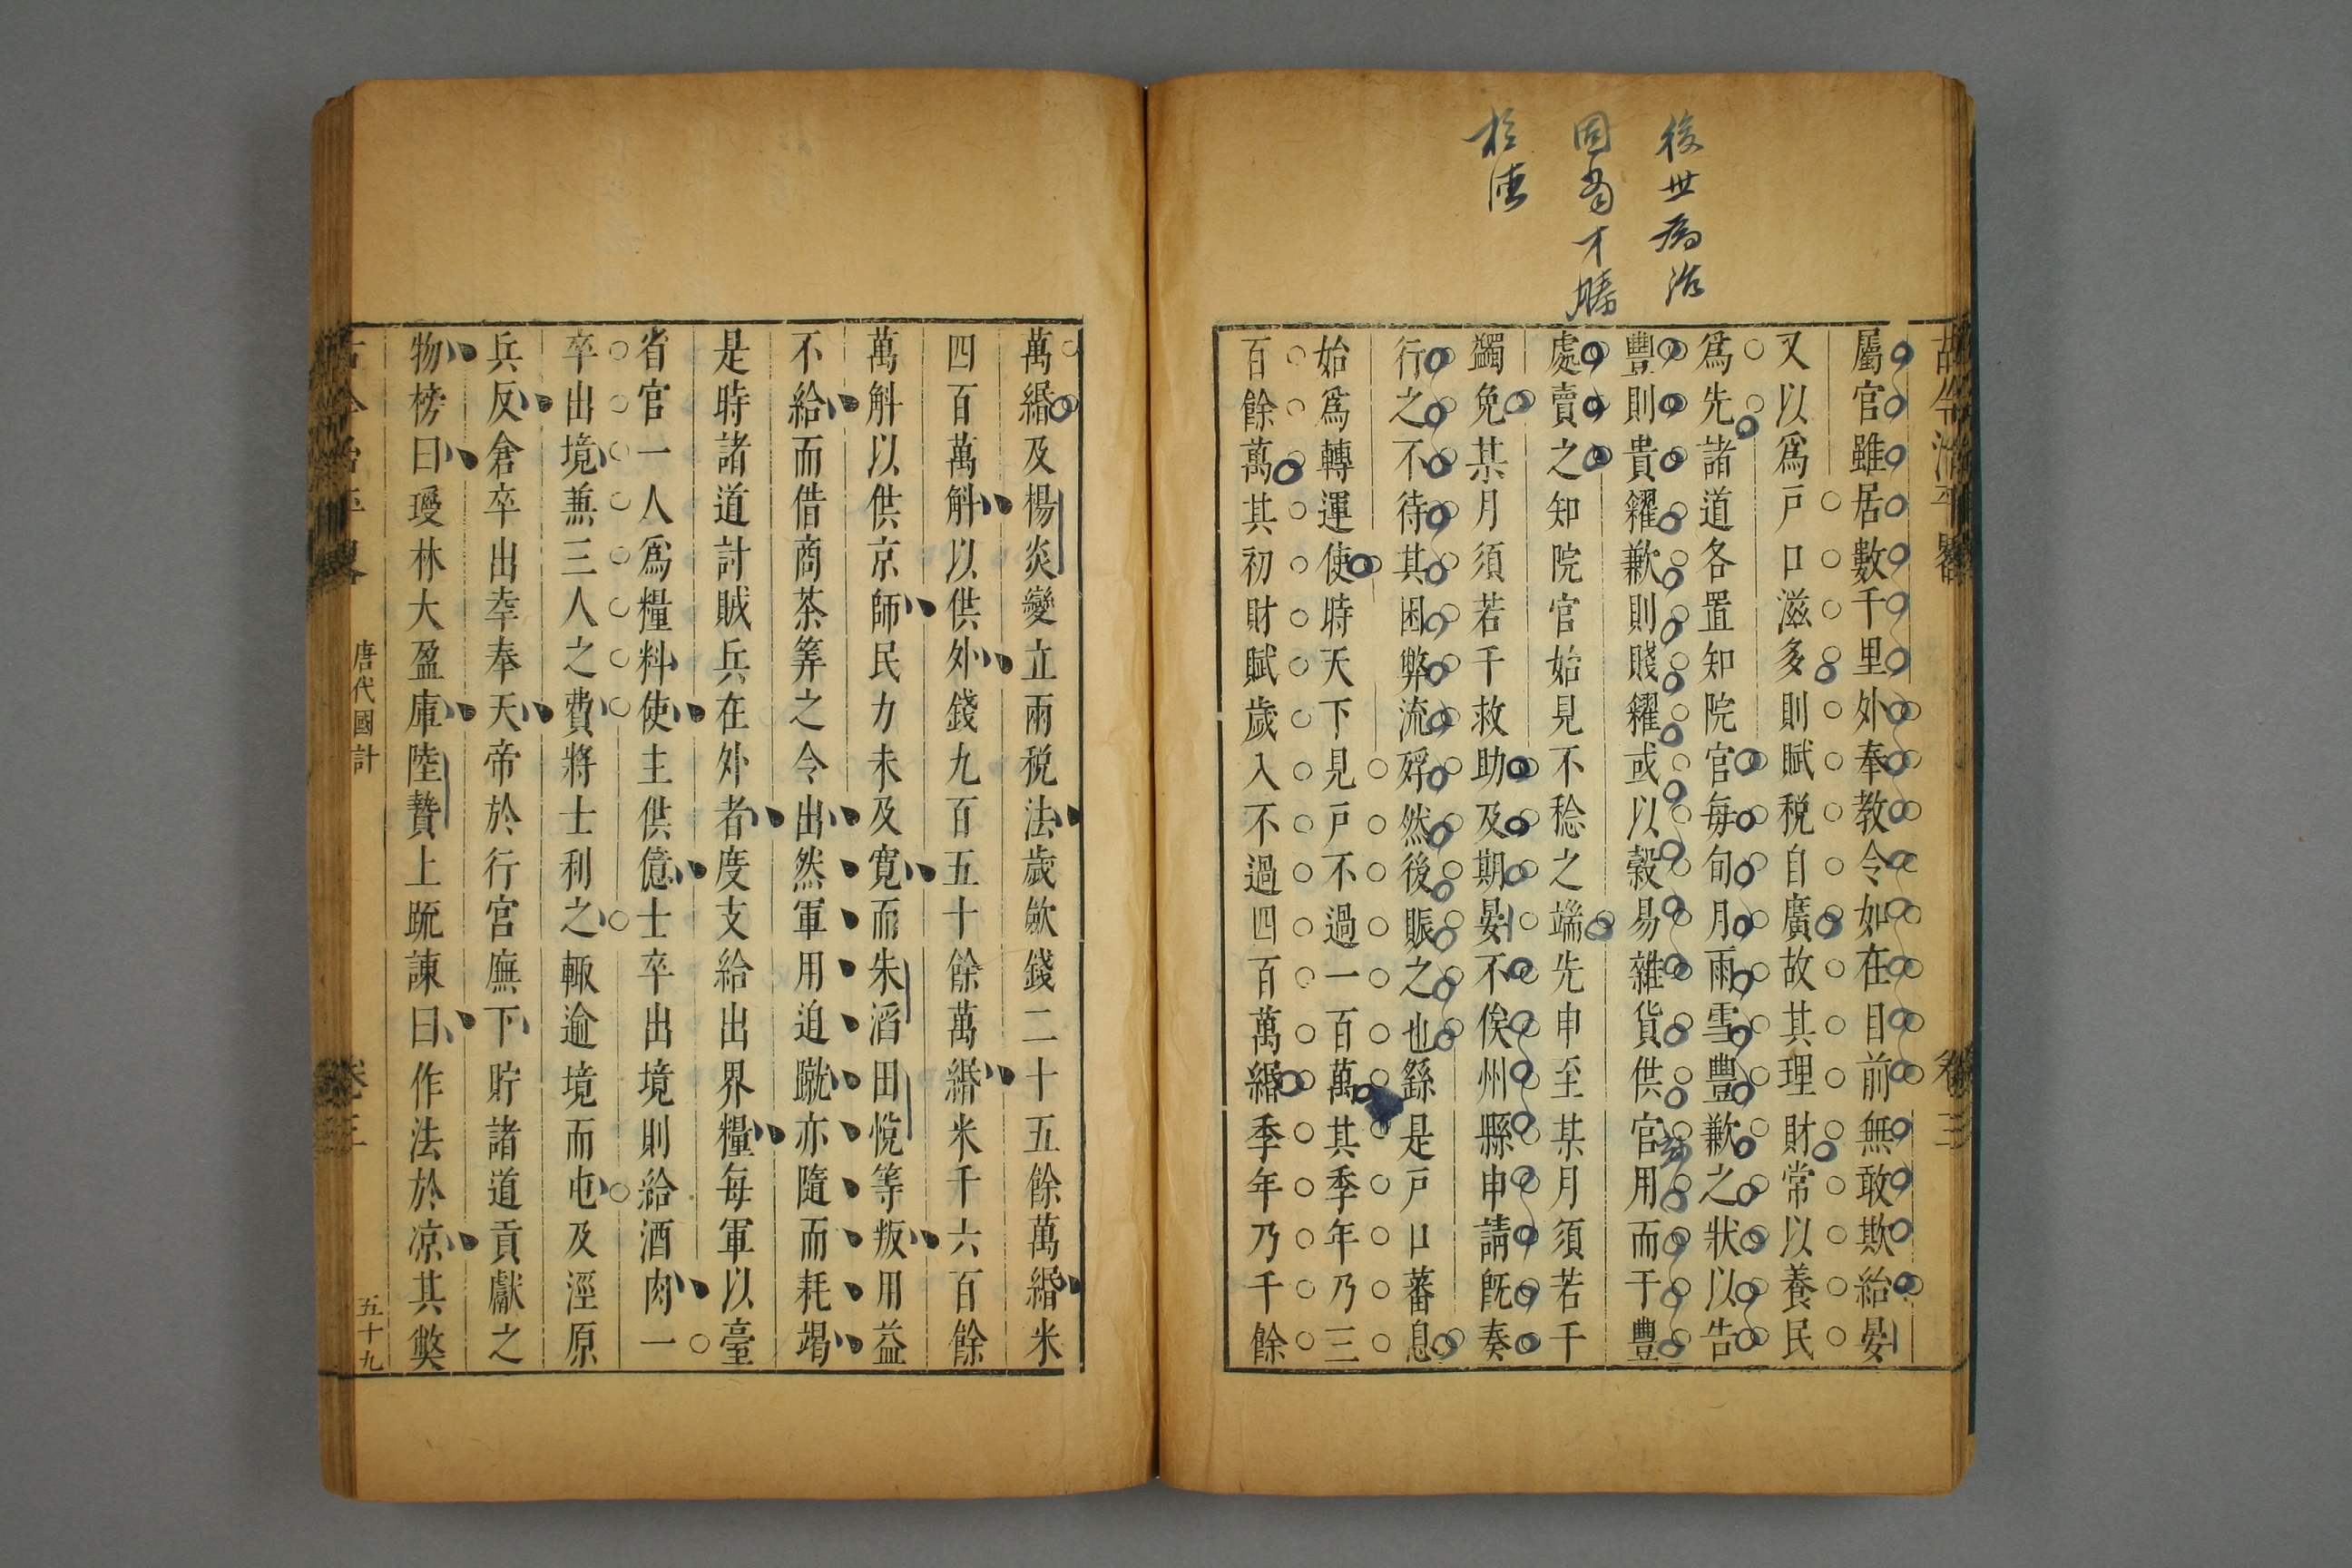 後世為治
固當才勝
於德
屬官雖居數千里外奉教令如在目前無敢欺紿晏
又以爲戸口滋多則賦税自廣故其理財常以養民
爲先諸道各置知院官每旬月雨雪豐歉之狀以告
豐則貴糴歉則賤糶或以穀易雜貨供官用而于豐
處賣之知院官始見不稔之端先申至某月須若干
蠲免某月須若干救助及期晏不俟州縣申請旣奏
行之不待其困弊流殍然後賑之也繇是戸口蕃息
始爲轉運使時天下見戸不過一百萬其季年乃三
百餘萬其初財賦歲入不過四百萬緡季年乃千餘
萬緡及楊炎變立兩税法歲斂錢二十五餘萬緡米
四百萬斛以供外錢九百五十餘萬緡米千六百餘
萬斛以供京師民力未及寛而朱滔田悅等叛用益
不給而借商茶筭之令出然軍用迫蹴亦隨而耗竭
是時諸道計賊兵在外者度支給出界糧每軍以臺
省官一人爲糧料使主供億士卒出境則給酒肉一
卒出境兼三人之費將士利之輒逾境而屯及涇原
兵反倉卒出幸奉天帝於行宫廡下貯諸道貢獻之
物榜曰瓊林大盈庫陸贄上䟽諫曰作法於凉其獘
唐代國計
五十九
卷三